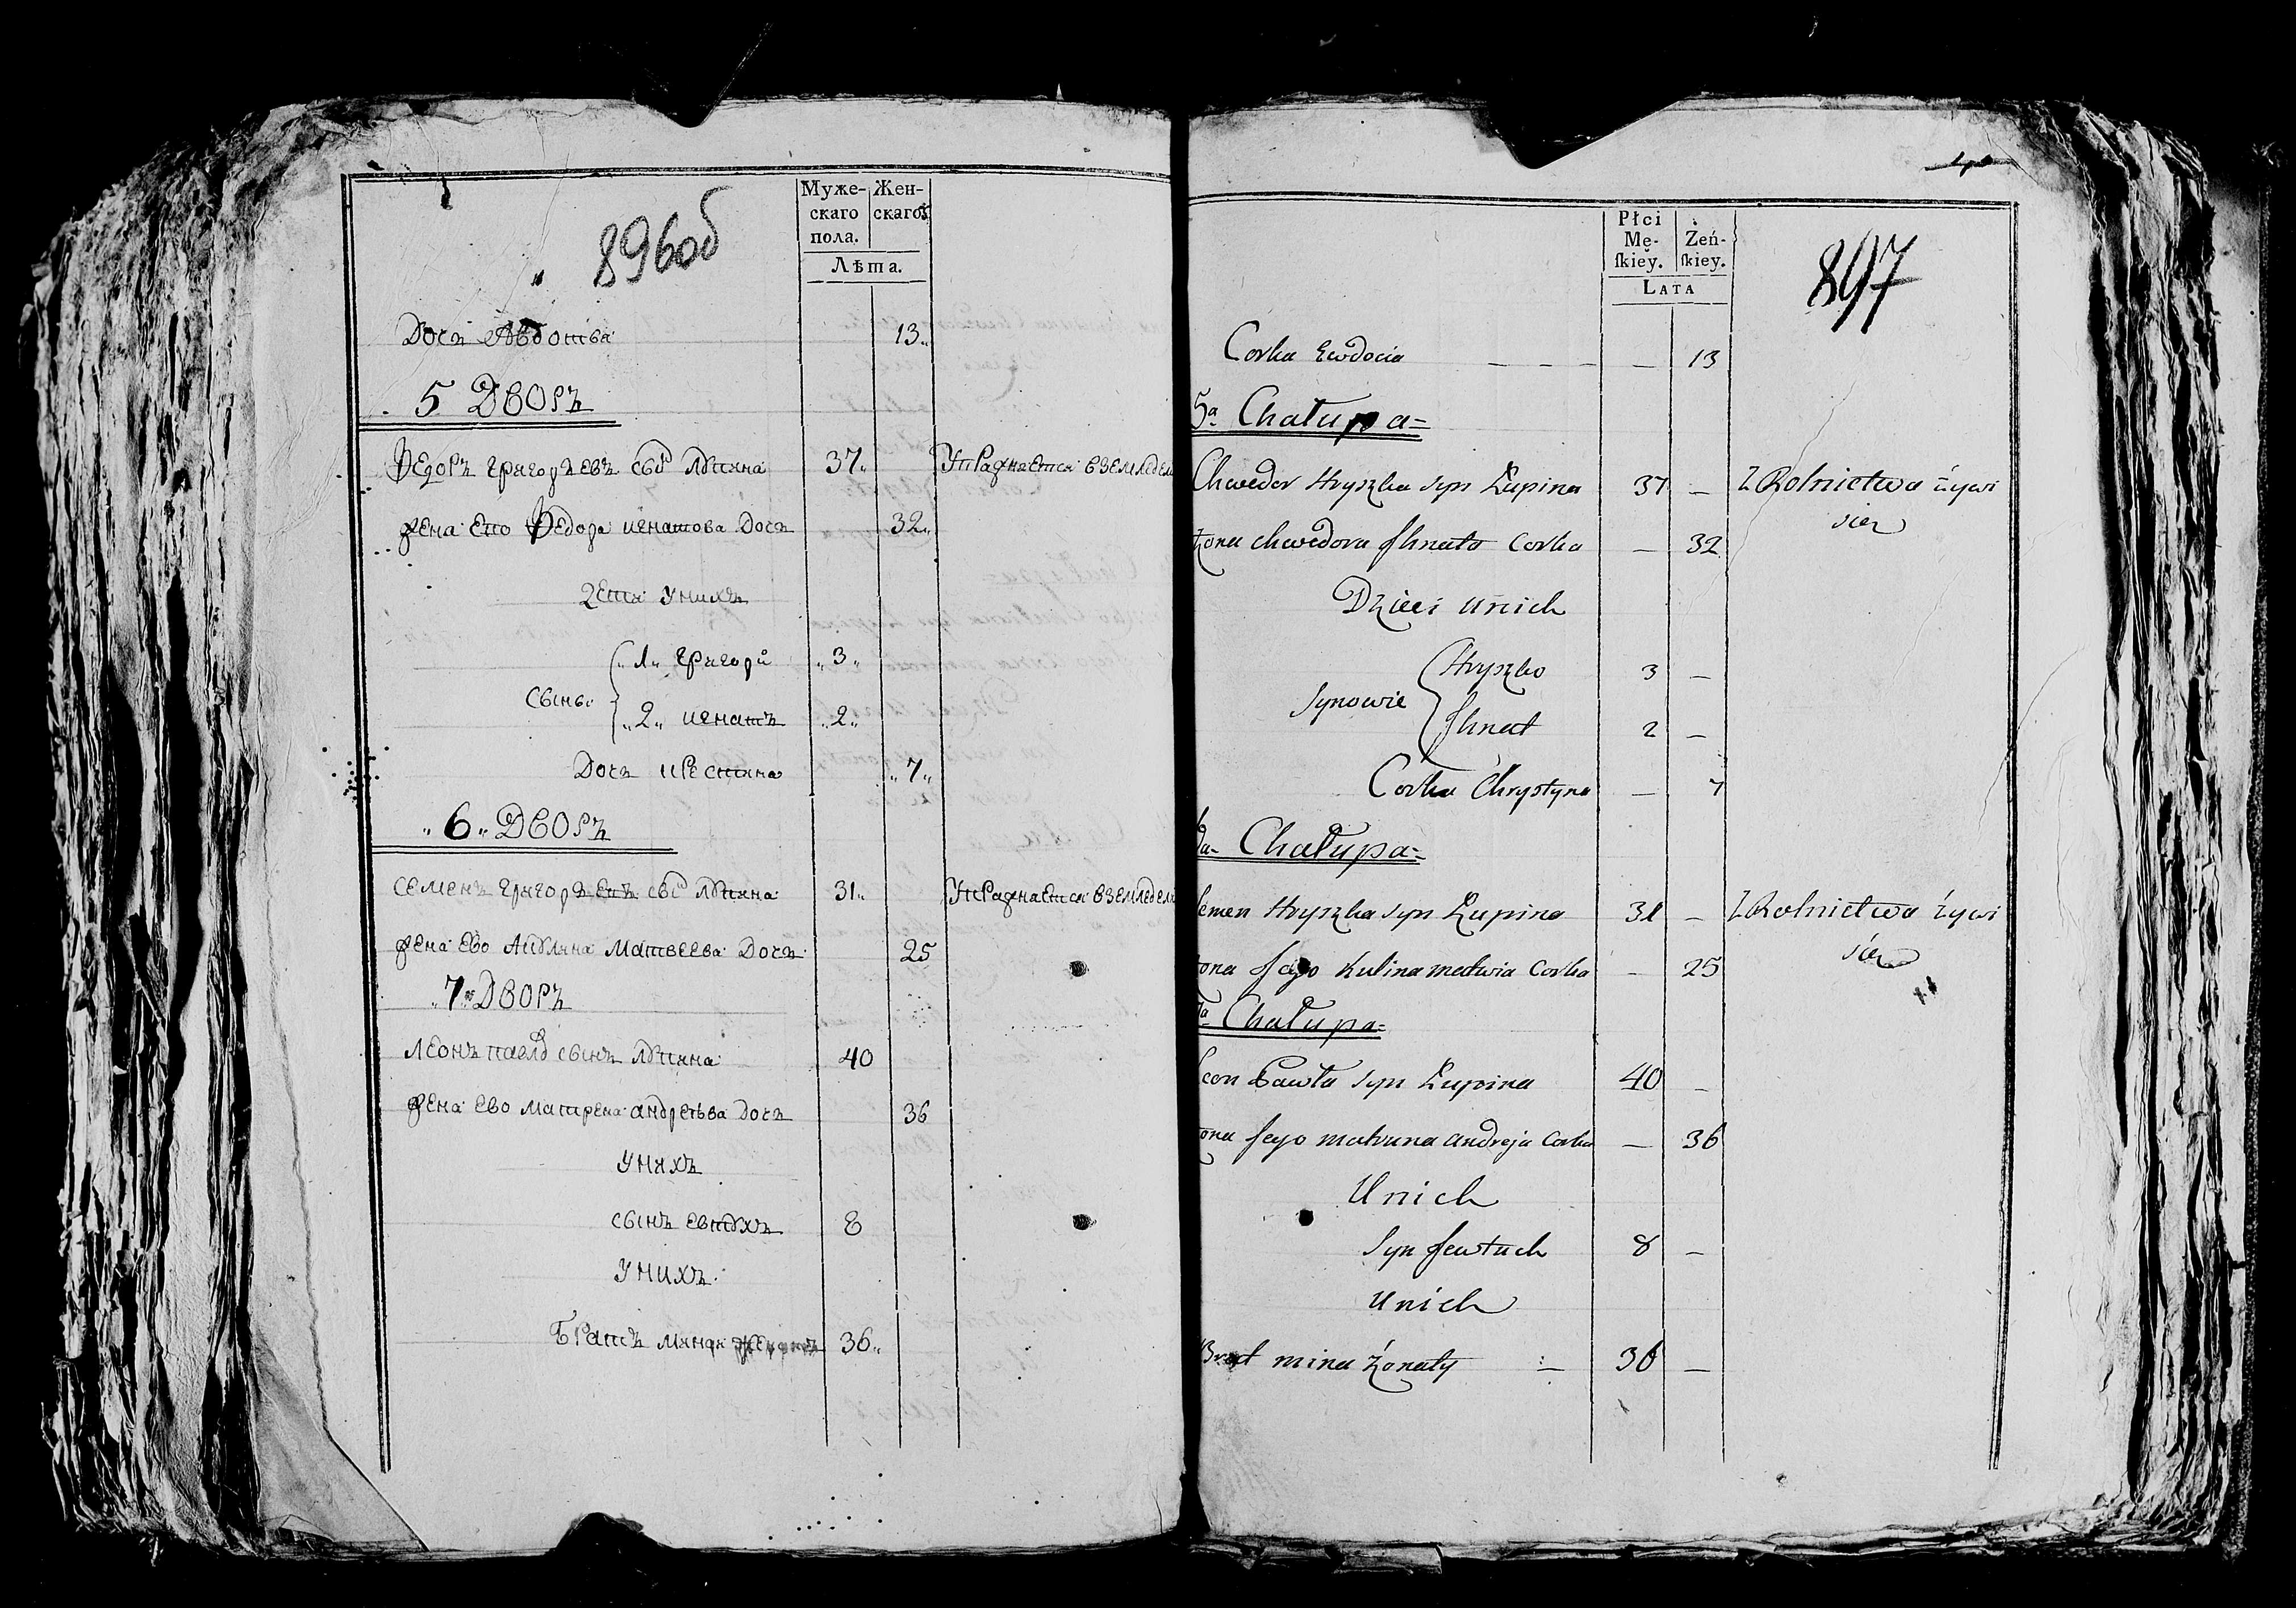 Муже-
скаго
пола.
Жен-
скаго
Лѣта.
896об
Дочъ Авдотва 13
5 Дворъ
Федоръ григоръевъ сынъ лупина 37 Упражнается вземледел
жена ево Федора игнатова Дочъ 32
дети унихъ
1 григори 3
Сыны
2 игнатъ 2
Дочъ
7
6 Дворъ
семенъ григоръевъ сынъ лупина 31 Упражнается вземледел
жена ево Акулина Матвеева Дочъ 25
7 Дворъ
леонъ павла сынъ лупина 40
жена ево матрена андреева Дочъ 36
унихъ
сынъ евтухъ 8
унихъ
Братъ мина 36
Płci
Mę-
ſkiey.
Żeń-
ſkiey.
Lata
897
Corka Ewdocia — — — — 13
5a Chałupa=
Chwedor Hryszka syn Łupina 37 — Z Rolnictwa żywi
się
żona chwedora Ihnata Corka — 32
Dzieci unich
Hryszko 3 —
Synowie
Ihnat 2 —
Corka Chrystyna — 7
6a Chałupa=
Semen Hryszka syn Łupina 31 — Z Rolnictwa żywi
się
żona Jego Kulina matwia Corka — 25
7a Chałupa=
Leon Pawła syn Łupina 40 —
żona Jego matruna andreja Corka — 36
Unich
Syn Jewtuch 8 —
Unich
Brat mina żonaty — 36 —